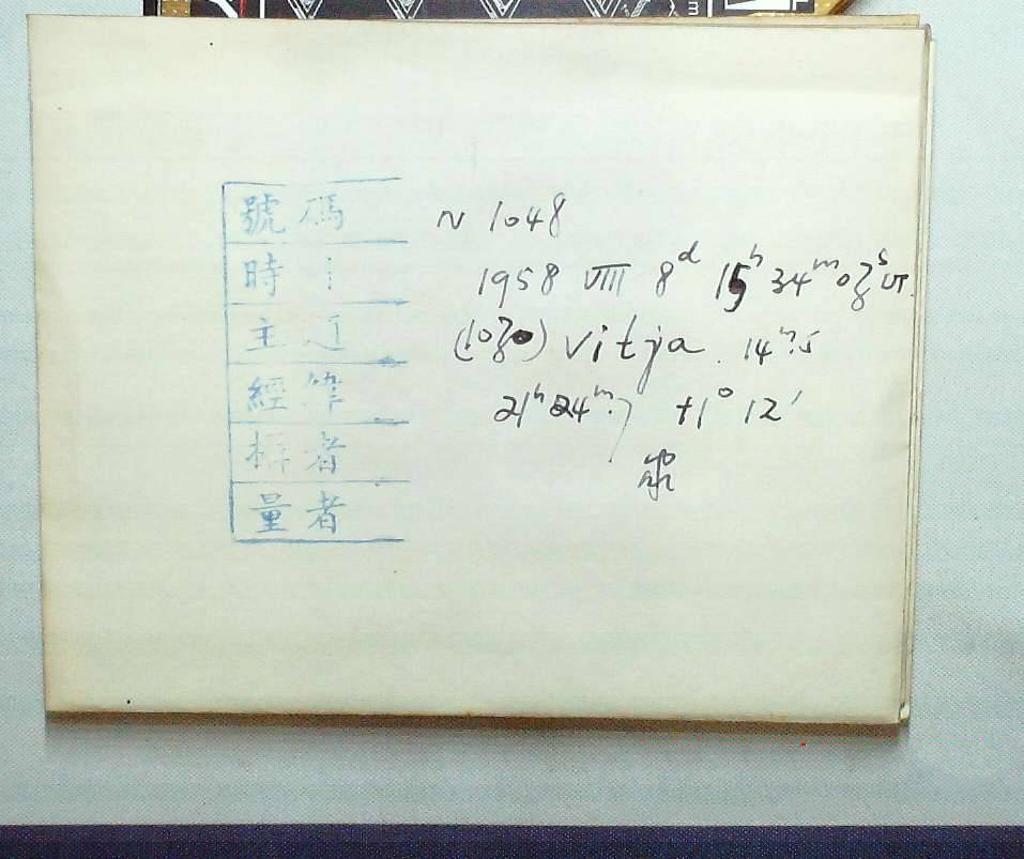 號碼 N 1048
時 1958 VIII 8ᵈ 15ʰ 34ᵐ 03ˢ UT.
主 (1030) Vitja. 14ᵐ.5
經緯 21ʰ 24ᵐ.7 +1° 12′
者
量者